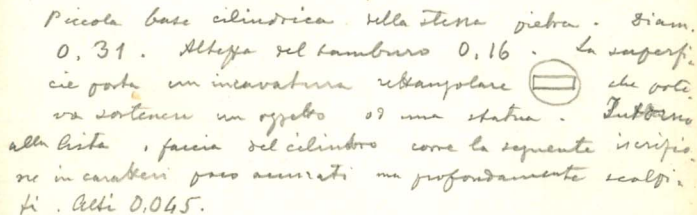 Piccola base cilindrica della stessa pietra. Diam.
0,31. Altezza del tamburo 0,16. La superfi-
cie porta un incavatura rettangolare che pote-
va sostenere un oggetto od una statua. Intorno
alla lista, fascia del cilindro corre la seguente iscrizio-
ne in caratteri poco accurati ma profondamente scolpi-
ti. Alti 0,045.